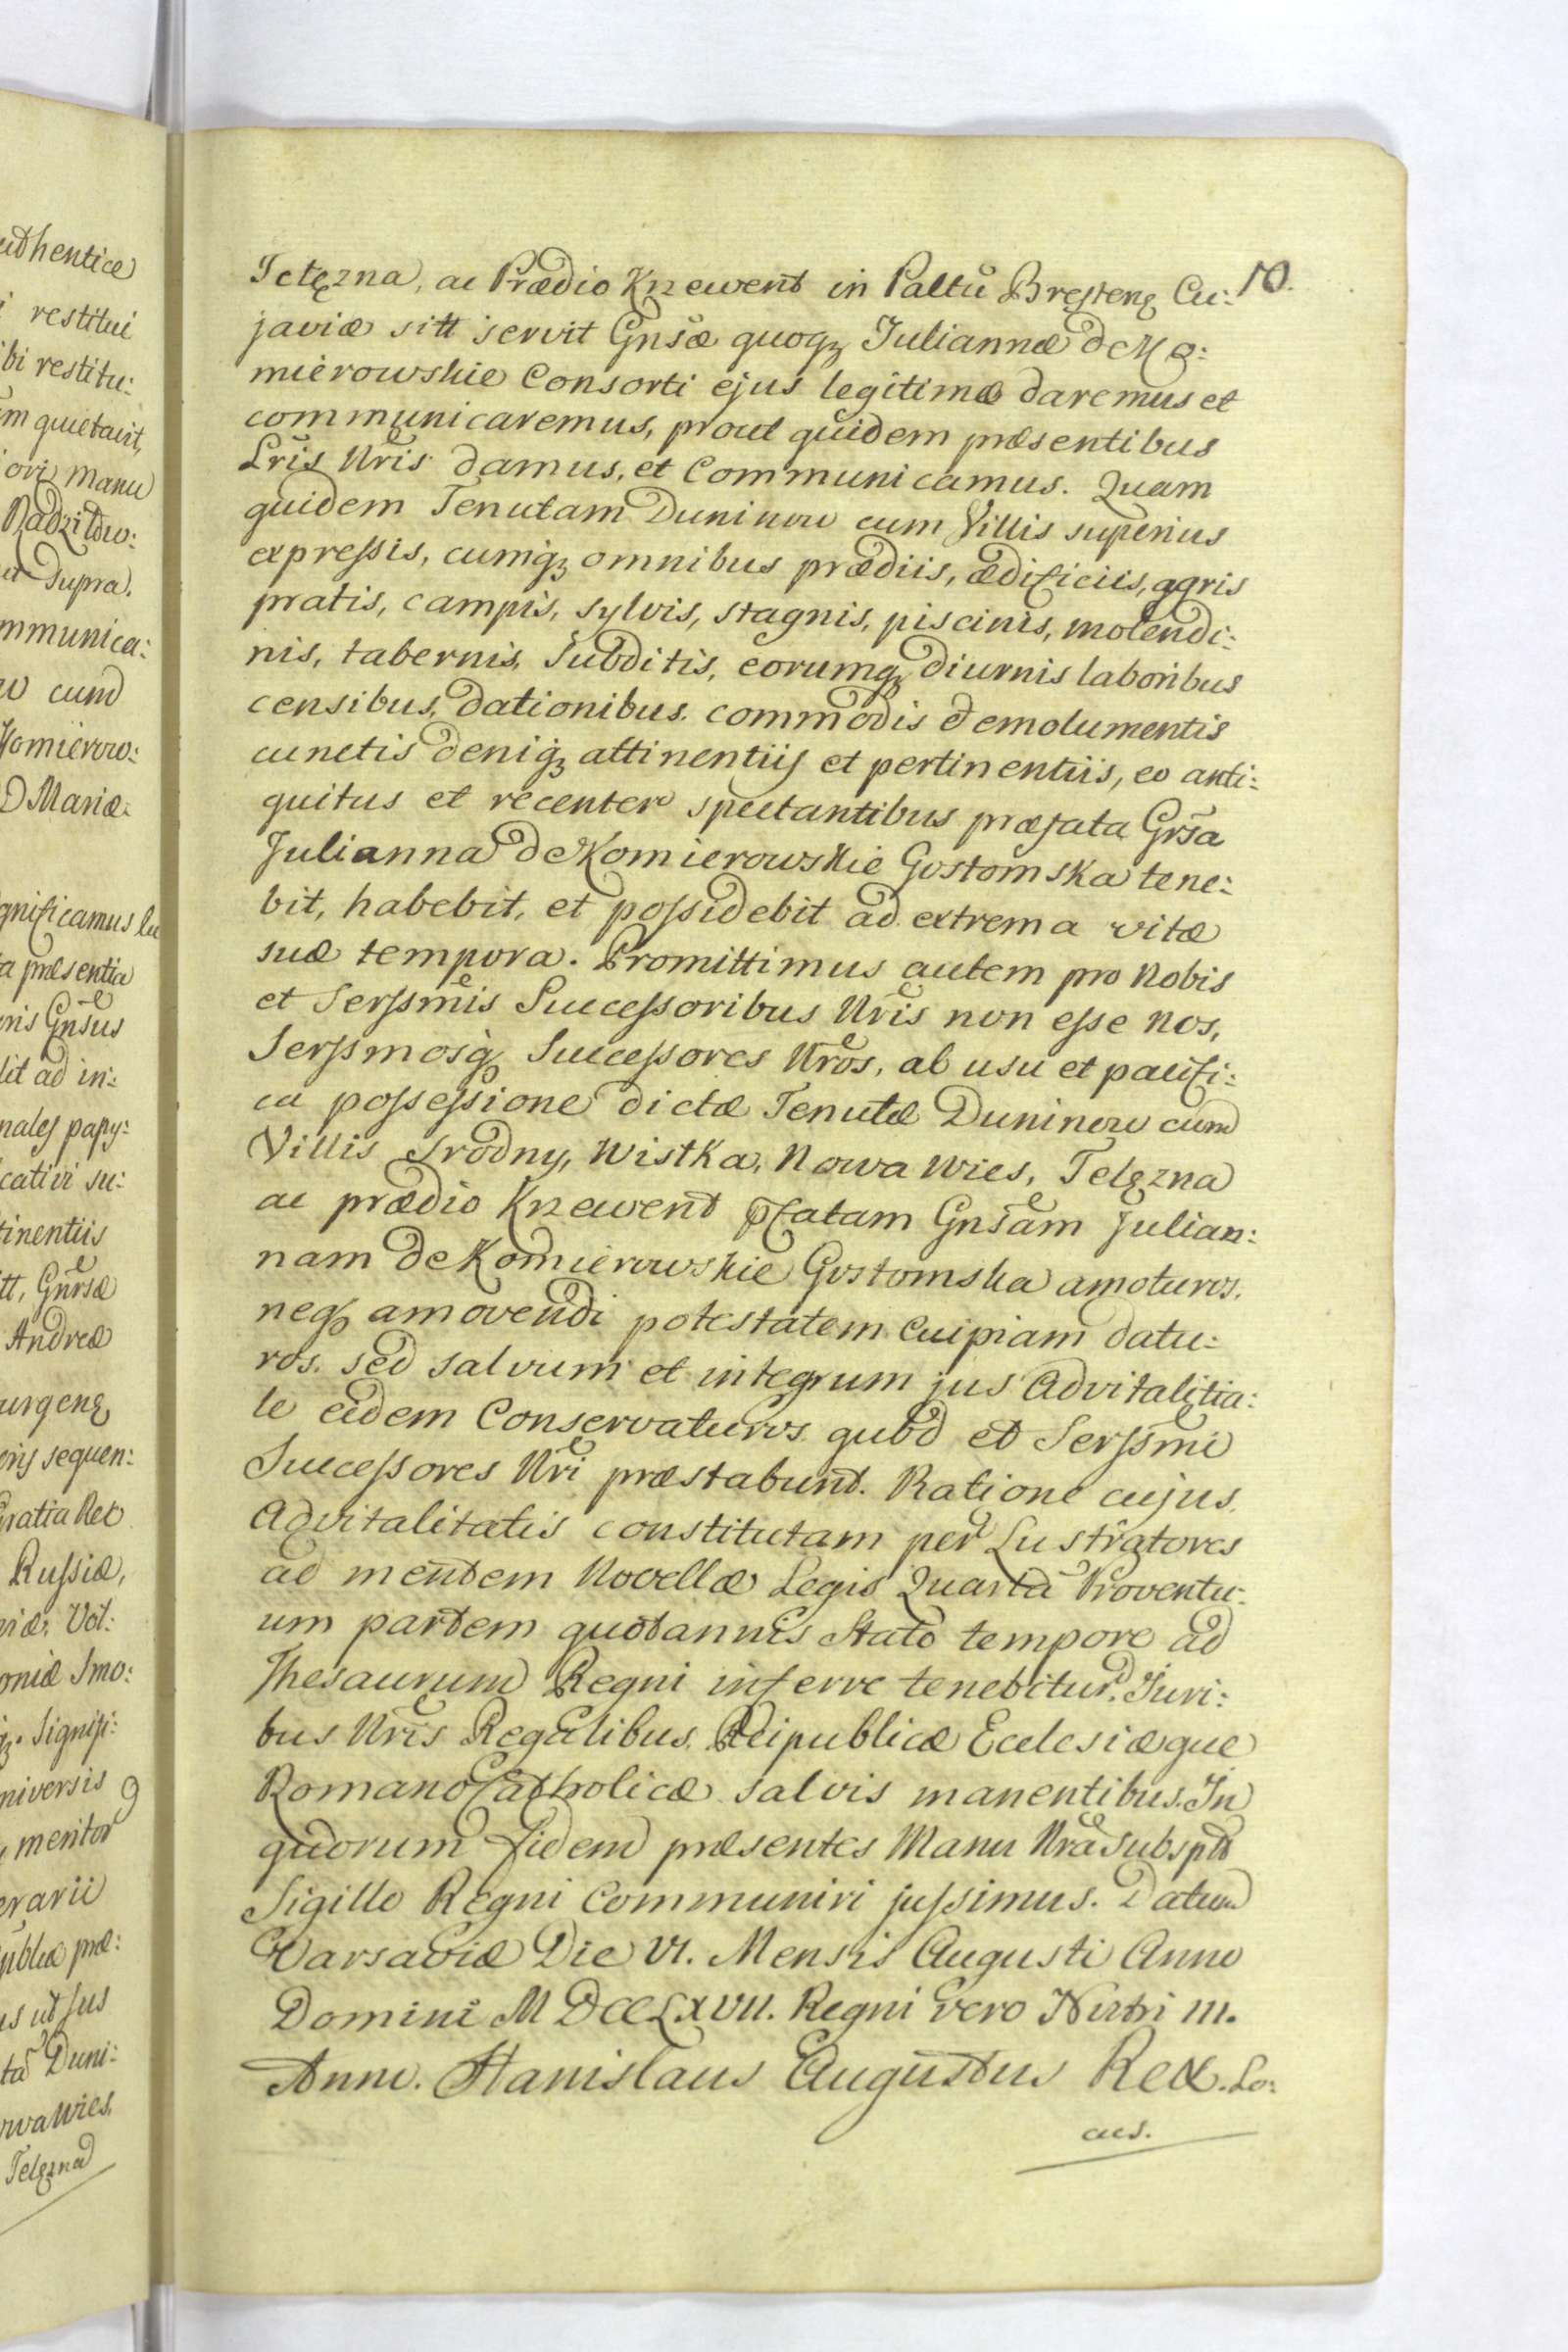 10.
Telęzna, ac Prædio Krzewent in Paltu Brestenę Cu:
javiæ sitt servit Gnsæ quoqȝ Juliannæ de Ko:
mierowskie Consorti ejus legitimæ daremus et
communicaremus, prout quidem præsentibus
Lris Nris damus, et Communicamus. Quam
quidem Tenutam Duninow cum Villis superius
expressis, cumqȝ omnibus prædiis, ædificiis, agris
pratis, campis, sylvis, stagnis, piscinis, molendi:
nis, tabernis, Subditis, eorumqȝ diurnis laboribus
censibus, dationibus. commodis et emolumentis
cunctis deniqȝ attinentiis et pertinentiis, eo anti:
quitus et recenter spectantibus præfata Grsa
Julianna de Komierowskie Gostomska tene:
bit, habebit, et possidebit ad extrema vitæ
suæ tempora. Promittimus autem pro Nobis
et Serssmis Successoribus Nris non esse Nos,
Serssmosqȝ Successores Nros, ab usu et pacifi:
ca possessione dictæ Tenutæ Duninow cum
Villis Srodny, Wistka, Nowa Wies, Telęzna
ac prædio Krzewent pfatam Gnsam Julian:
nam de Komierowskie Gostomska amoturos,
neqȝ amovendi potestatem cuipiam datu:
ros. sed salvum et integrum jus Advitalitia:
le eidem Conservaturos. quod et Serssmi
Successores Nri præstabunt. Ratione cujus
Advitalitatis constitutam per Lustratores
ad mentem Novellæ Legis Quarta Proventu:
um partem quotannis Stato tempore ad
Thesaurum Regni inferre tenebitur. Juri:
bus Nris Regalibus, Reipublicæ Ecclesiæque
Romano Catholicæ salvis manentibus. In
quorum fidem præsentes Manu Nra subsptt
Sigillo Regni Communiri jussimus. Datum
Varsaviæ Die VI. Mensis Augusti Anno
Domini MDCCLXVII. Regni vero Nostri III.
Anno. Stanislaus Augustus Rex. Lo:
cus.